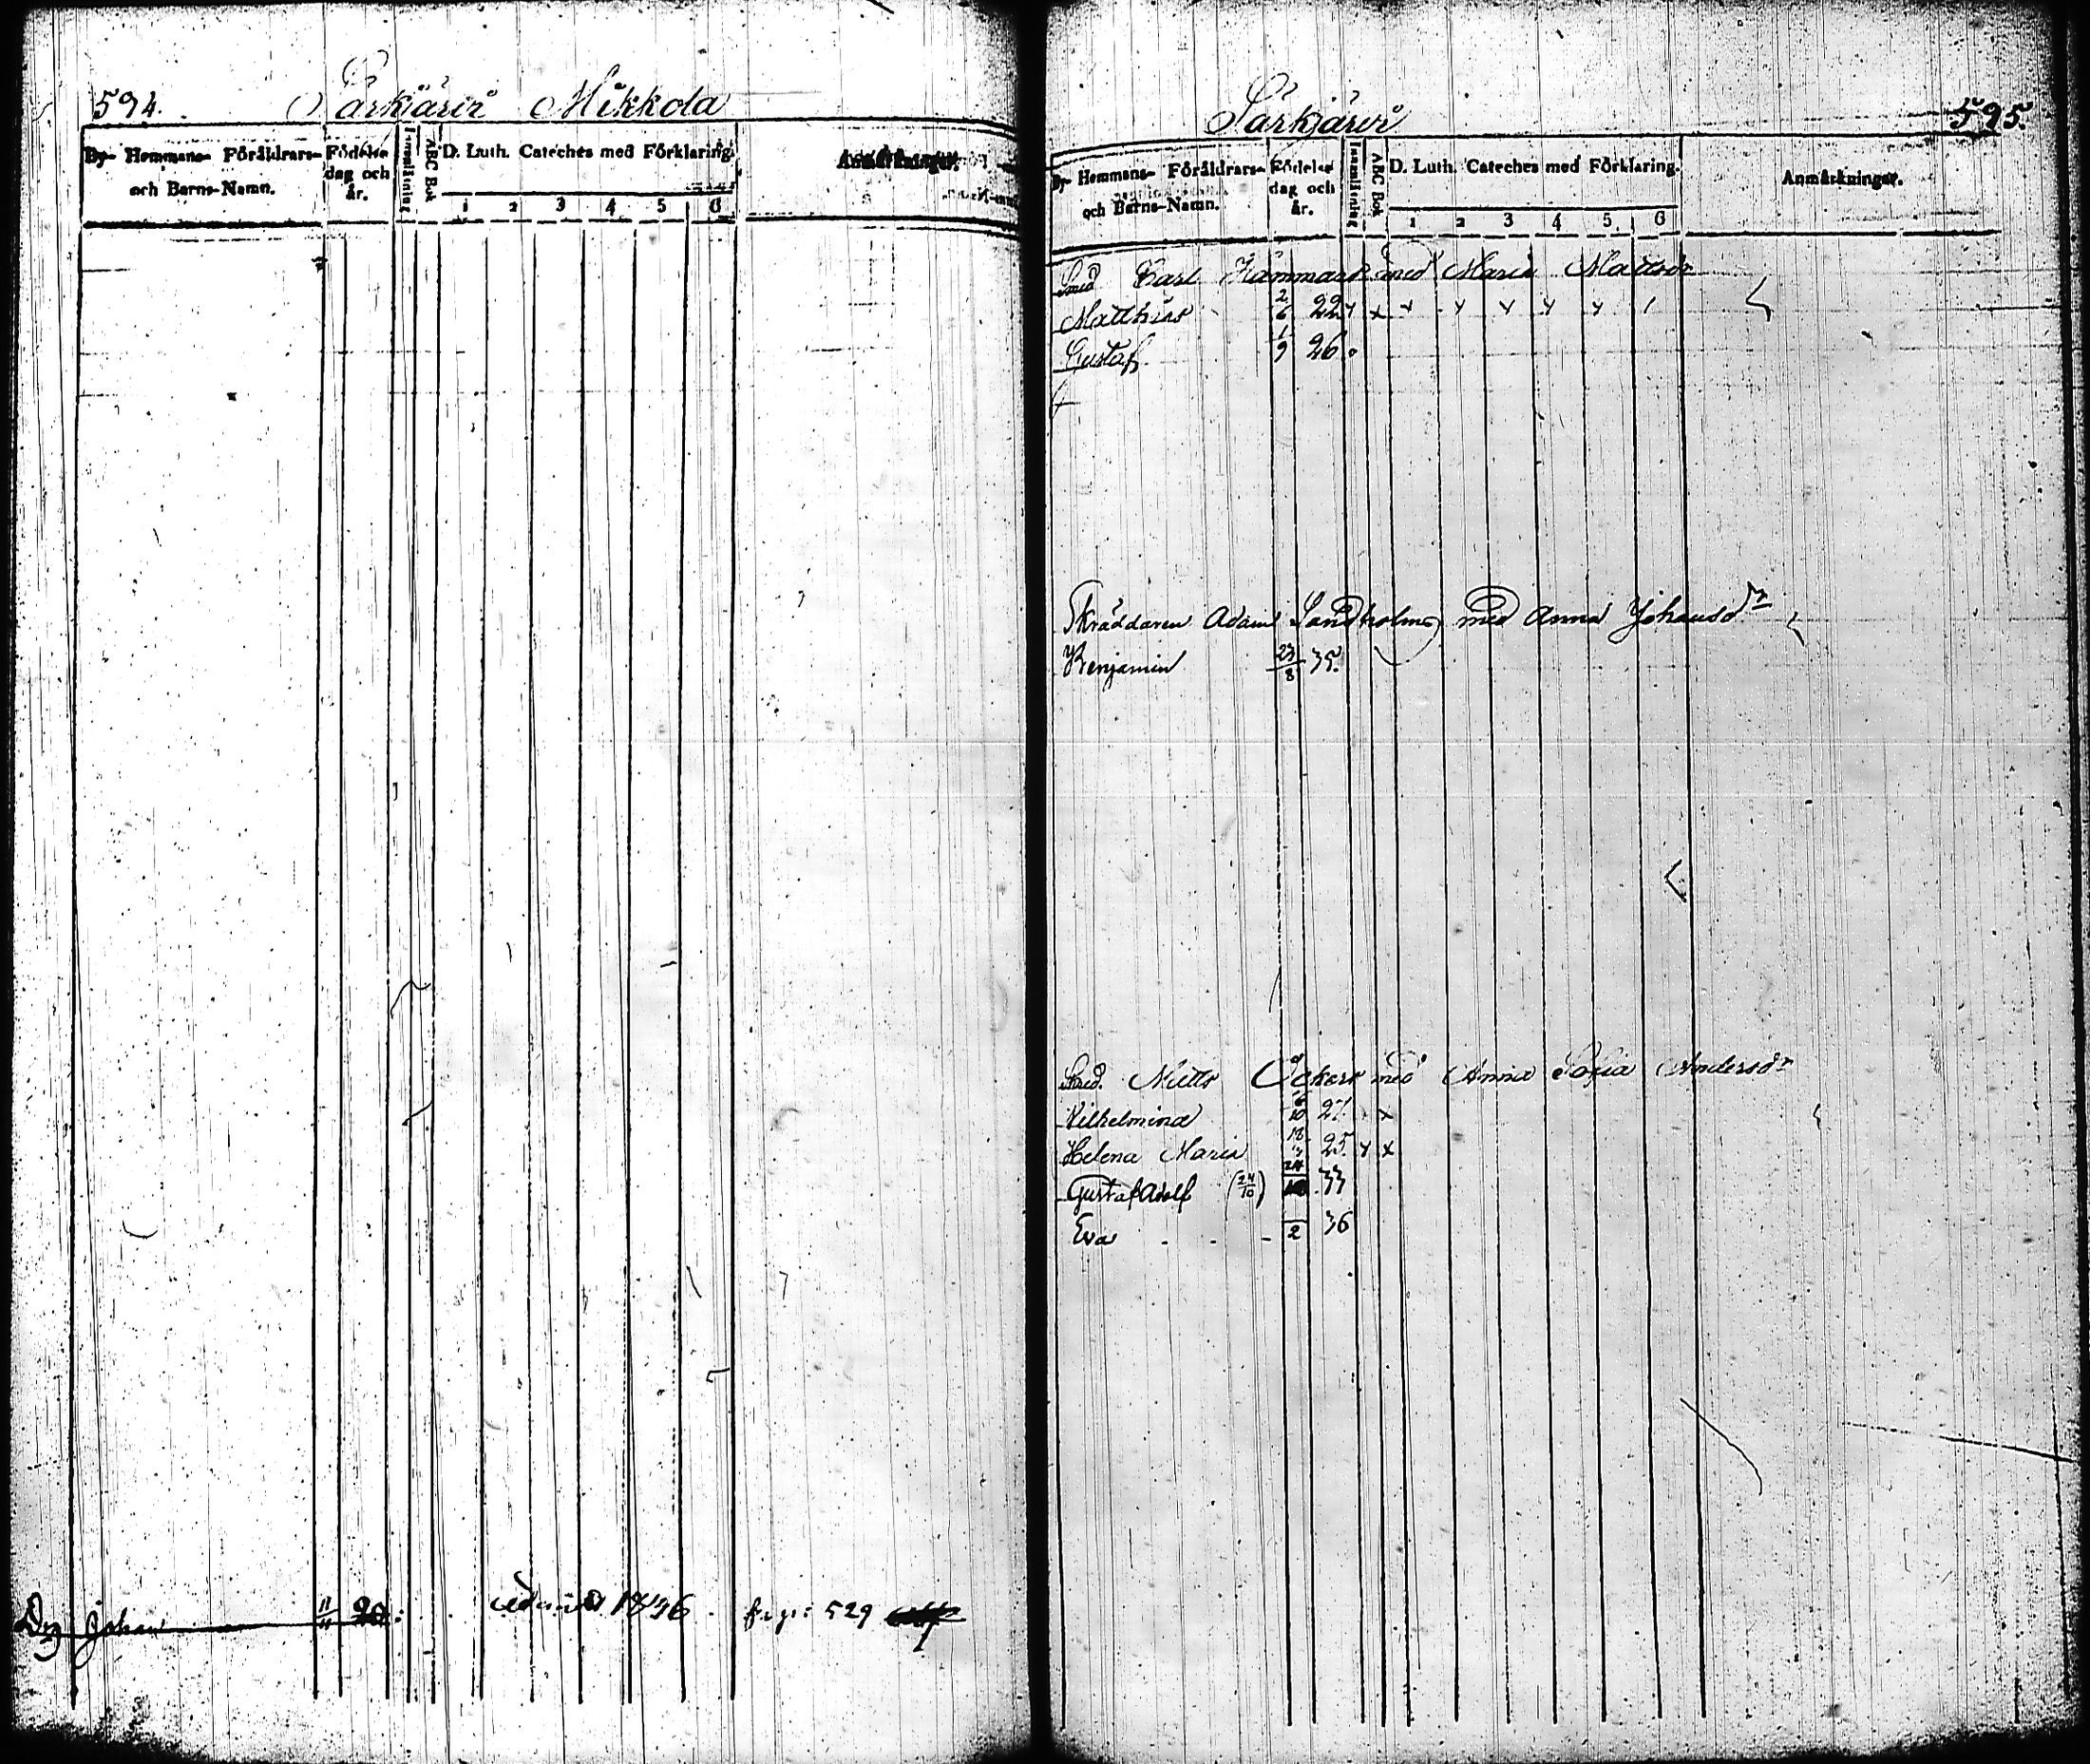 594. Särkjärvi Mikkola
By- Hemmans- Föräldrars- och Barns-Namn. Födelse dag och år. Innanläsning ABC Bok D. Luth. Cateches med Förklaring. Anmärkningar.
1 2 3 4 5 6
Johan 11/11 20 admitt 1836. 529
Särkjärvi 595.
By- Hemmans- Föräldrars- och Barns-Namn. Födelse dag och år. Innanläsning ABC Bok D. Luth. Cateches med Förklaring. Anmärkningar.
1 2 3 4 5 6
Smed Carl Hammars med Maria Mattsdr
Matthias 2/6 22
Gustaf 1/9 26
Skräddaren Adam Sandholm med Anna Johansdr
Benjamin 23/8 35.
Smed. Matts Öckers med Anna Sofia Andersdr
Vilhelmina 10 27
Helena Maria 18 25.
Gustaf Adolf (24/10) 24/10 33
Eva - - - 2 36